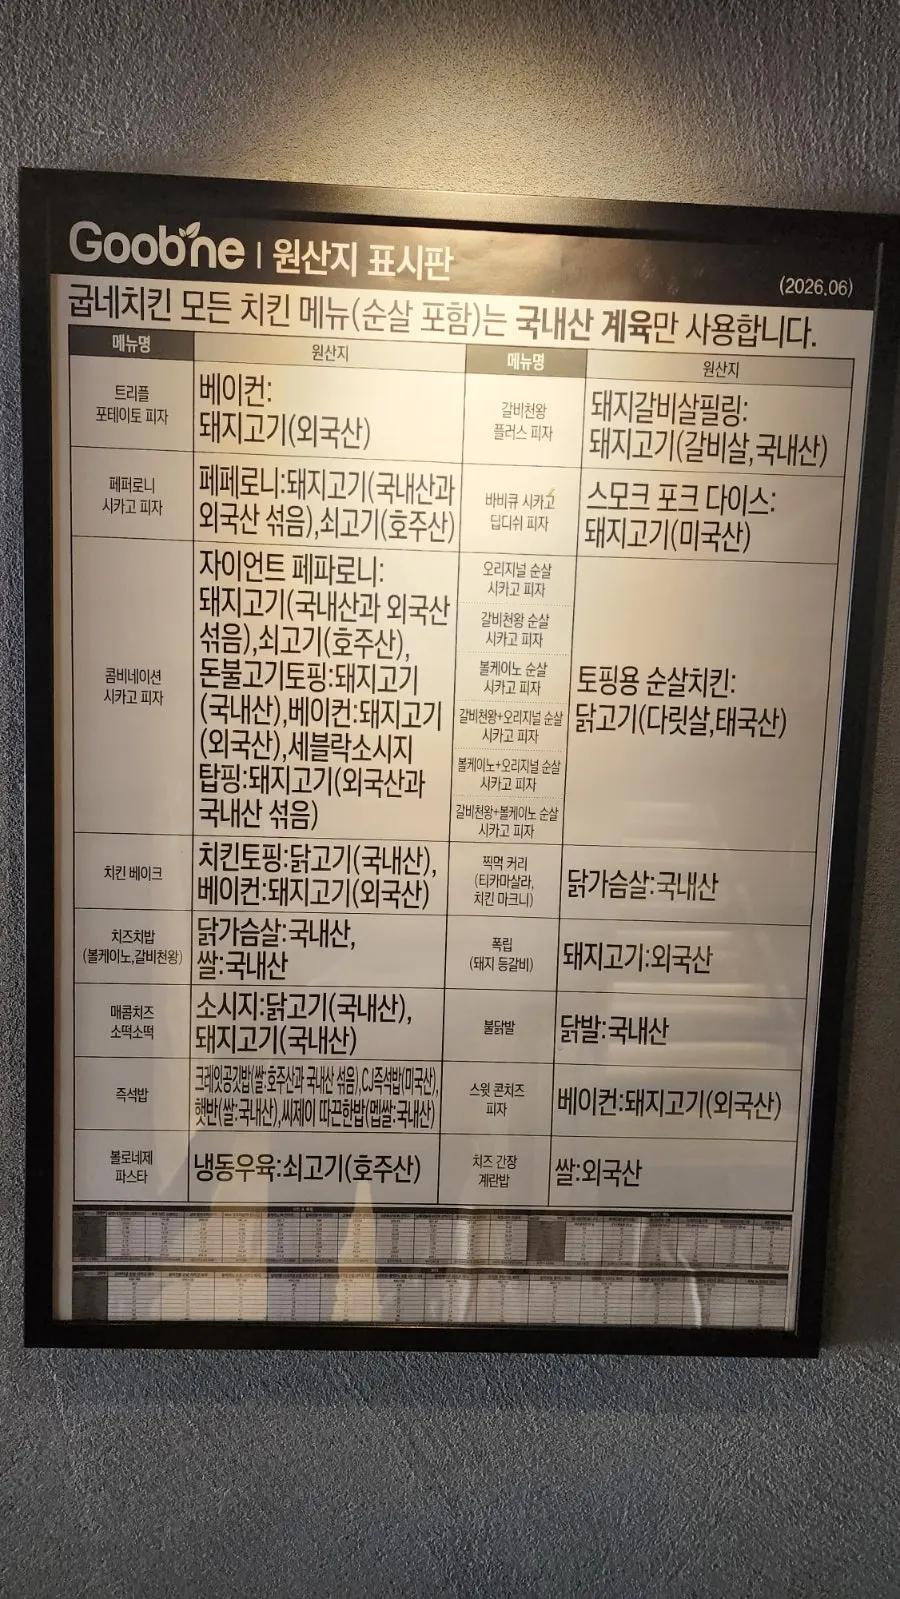 Goobne | 원산지 표시판
(2026.06)
굽네치킨 모든 치킨 메뉴(순살 포함)는 국내산 계육만 사용합니다.
메뉴명
원산지
트리플
포테이토 피자
베이컨:
돼지고기(외국산)
페퍼로니
시카고 피자
페페로니:돼지고기(국내산과
외국산 섞음),쇠고기(호주산)
콤비네이션
시카고 피자
자이언트 페파로니:
돼지고기(국내산과 외국산
섞음),쇠고기(호주산),
돈불고기토핑:돼지고기
(국내산),베이컨:돼지고기
(외국산),세블락소시지
탑핑:돼지고기(외국산과
국내산 섞음)
치킨 베이크
치킨토핑:닭고기(국내산),
베이컨:돼지고기(외국산)
치즈치밥
(볼케이노,갈비천왕)
닭가슴살:국내산,
쌀:국내산
매콤치즈
소떡소떡
소시지:닭고기(국내산),
돼지고기(국내산)
즉석밥
크레잇공깃밥(쌀:호주산과 국내산 섞음),CJ즉석밥(미국산),
햇반(쌀:국내산),씨제이 따끈한밥(멥쌀:국내산)
볼로네제
파스타
냉동우육:쇠고기(호주산)
메뉴명
원산지
갈비천왕
플러스 피자
돼지갈비살필링:
돼지고기(갈비살,국내산)
바비큐 시카고
딥디쉬 피자
스모크 포크 다이스:
돼지고기(미국산)
오리지널 순살
시카고 피자
갈비천왕 순살
시카고 피자
볼케이노 순살
시카고 피자
갈비천왕+오리지널 순살
시카고 피자
볼케이노+오리지널 순살
시카고 피자
갈비천왕+볼케이노 순살
시카고 피자
토핑용 순살치킨:
닭고기(다릿살,태국산)
찍먹 커리
(티카마살라,
치킨 마크니)
닭가슴살:국내산
폭립
(돼지 등갈비)
돼지고기:외국산
불닭발
닭발:국내산
스윗 콘치즈
피자
베이컨:돼지고기(외국산)
치즈 간장
계란밥
쌀:외국산